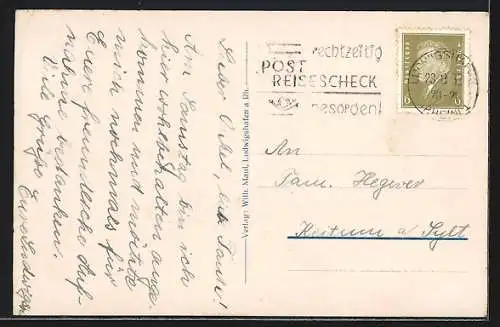 Lieber Onkel, liebe Tante!
Am Samstag bin ich
hier wohlbehalten ange-
kommen und möchte
mich nochmals für
Eure freundliche Auf-
nahme bedanken.
Viele Grüße
Verlag: Wilh. Maul, Ludwigshafen a Rh.
rechtzeitig
POST
REISESCHECK
besorgen!
6 6
An
Fam. Hegwer
Keitum a/Sylt